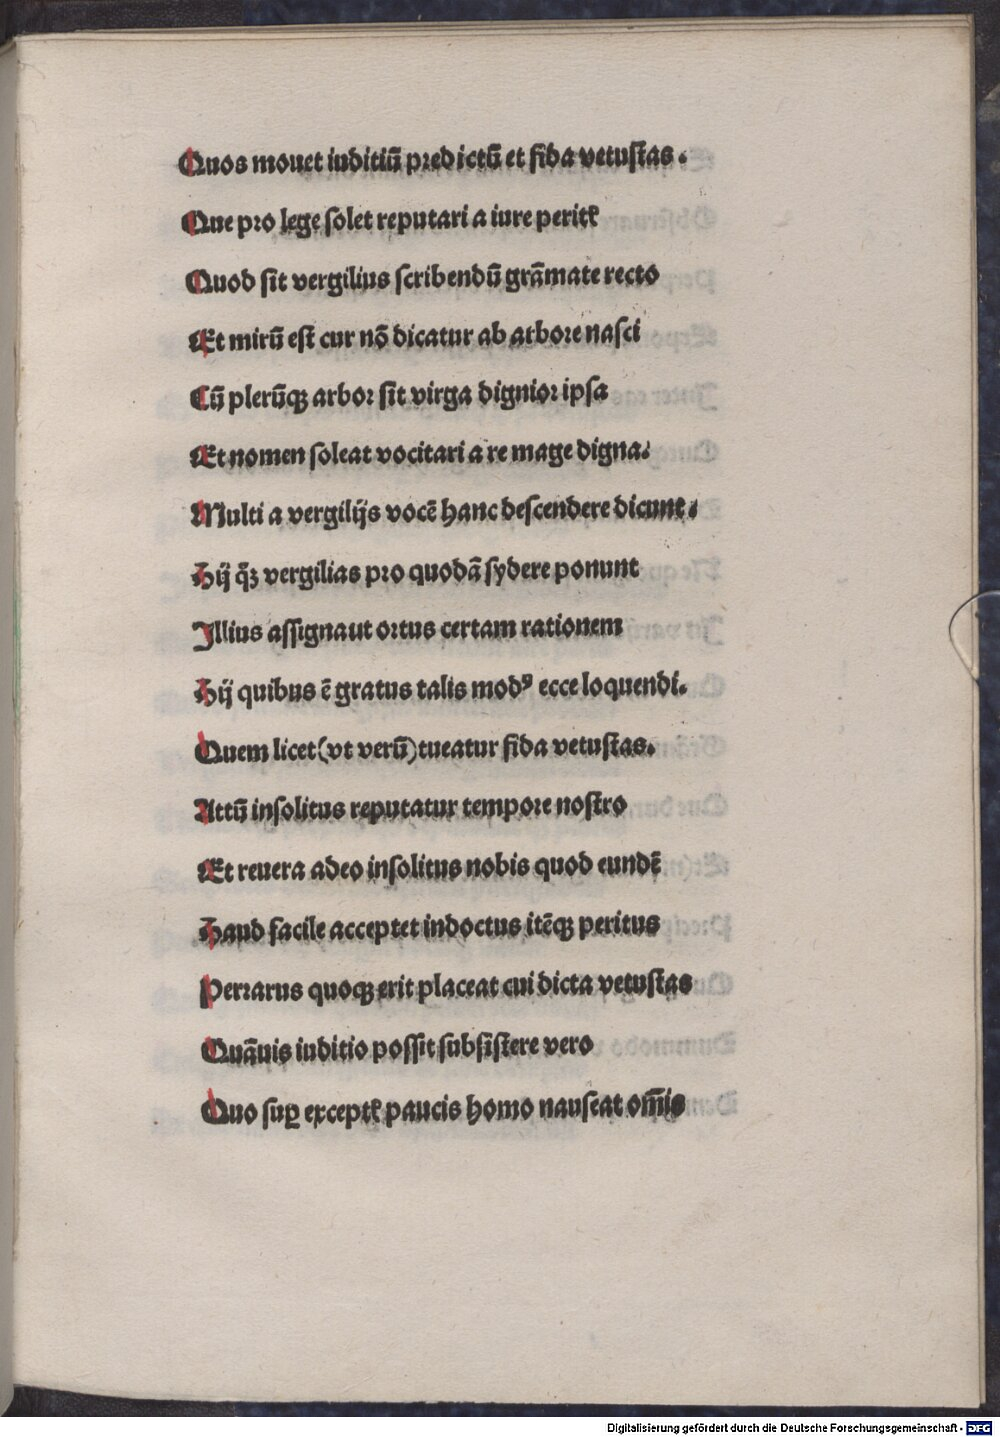 Quos mouet iuditiū predictū et fida vetuſtas .
Que pro lege ſolet reputari a iure peritꝭ
Quod ſit vergilius ſcribendū grāmate recto
Et mirū eſt cur nō dicatur ab arbore naſci
Cū plerūqꝫ arbor ſit virga dignior ipſa
Et nomen ſoleat vocitari a re mage digna.
Multi a vergilijs vocē hanc deſcendere dicunt.
Hij q̄ꝫ vergilias pro quodā ſydere ponunt
Illius aſſignaut ortus certam rationem
Hij quibus ē gratus talis modꝰ ecce loquendi.
Quem licet(vt verū)tueatur fida vetuſtas.
Attū inſolitus reputatur tempore noſtro
Et reuera adeo inſolitus nobis quod eundē
Haud facile acceptet indoctus itēqꝫ peritus
Perrarus quoqꝫ erit placeat cui dicta vetuſtas
Quāuis iuditio poſſit ſubſiſtere vero
Quo ſuꝑ exceptꝭ paucis homo nauſeat om̄is
Digitalisierung gefördert durch die Deutsche Forschungsgemeinschaft - DFG